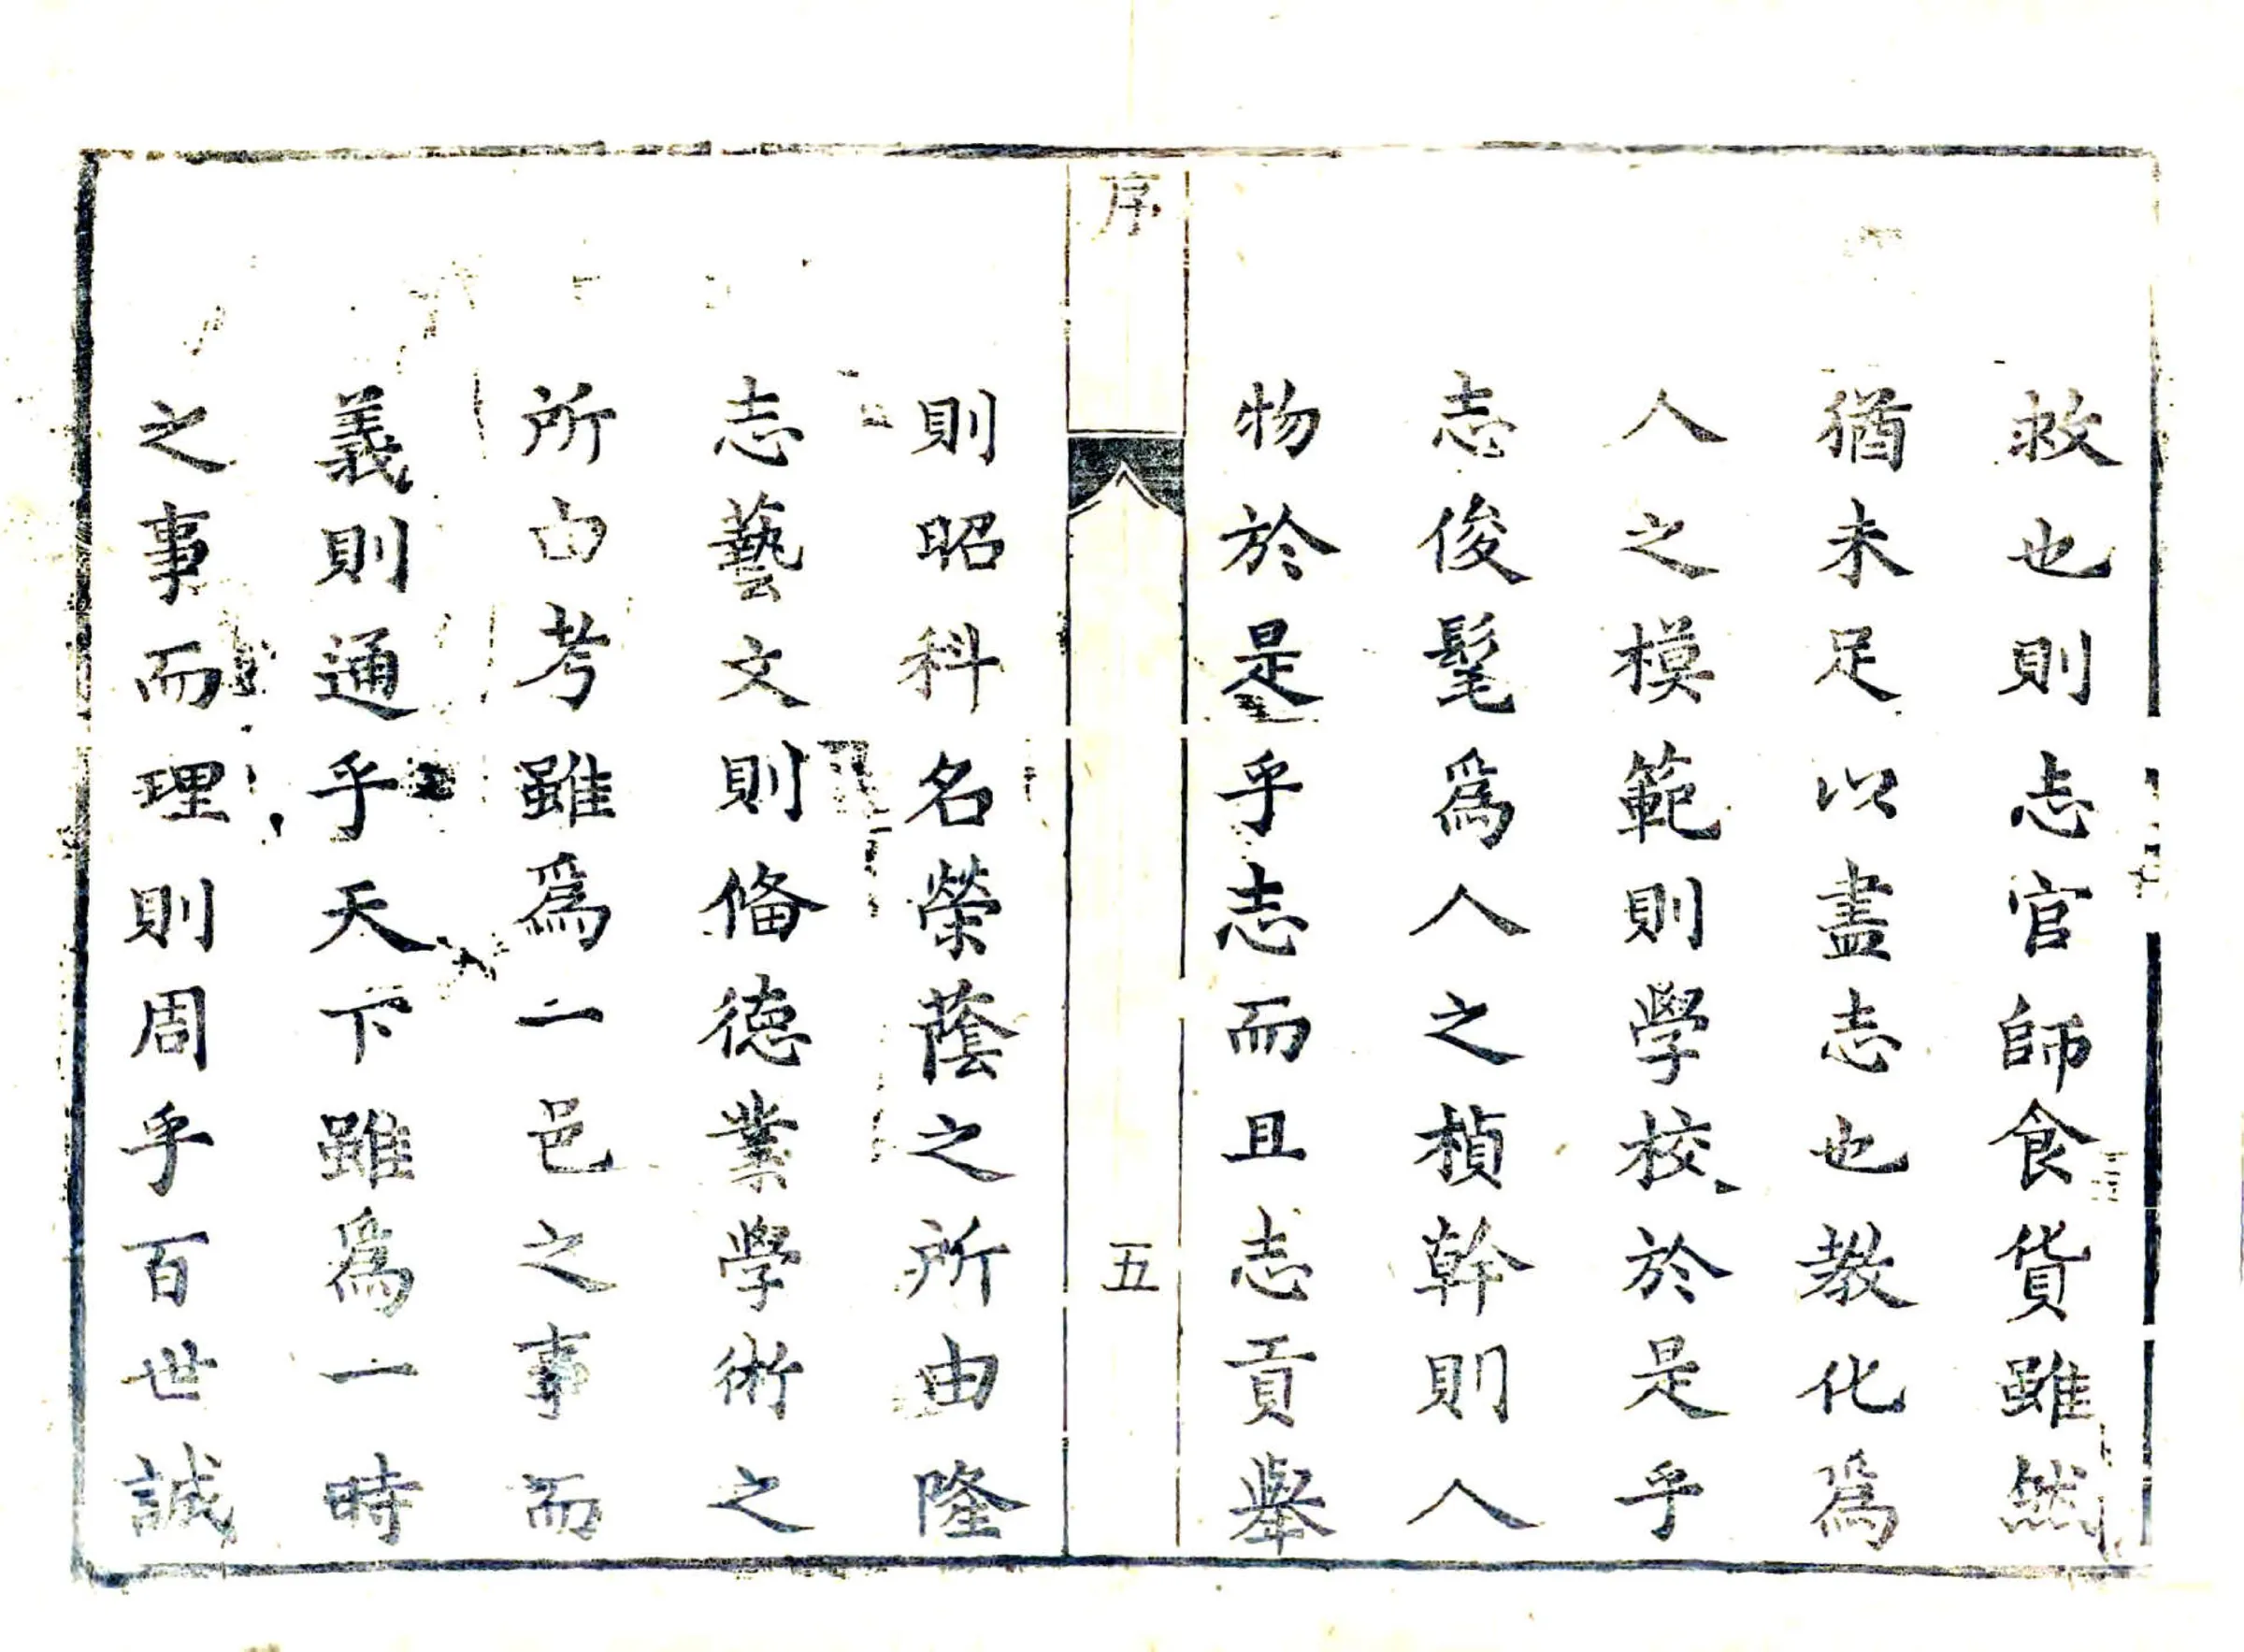 救也則志官師食貨雖然
猶未足以盡志也教化爲
人之模範則學校於是乎
志俊髦爲人之楨幹則人
物於是乎志而且志貢舉
序
五
則昭科名榮蔭之所由隆
志藝文則俻德業學術之
所由考雖爲一邑之事而
義則通乎天下雖爲一時
之事而理則周乎百世誠